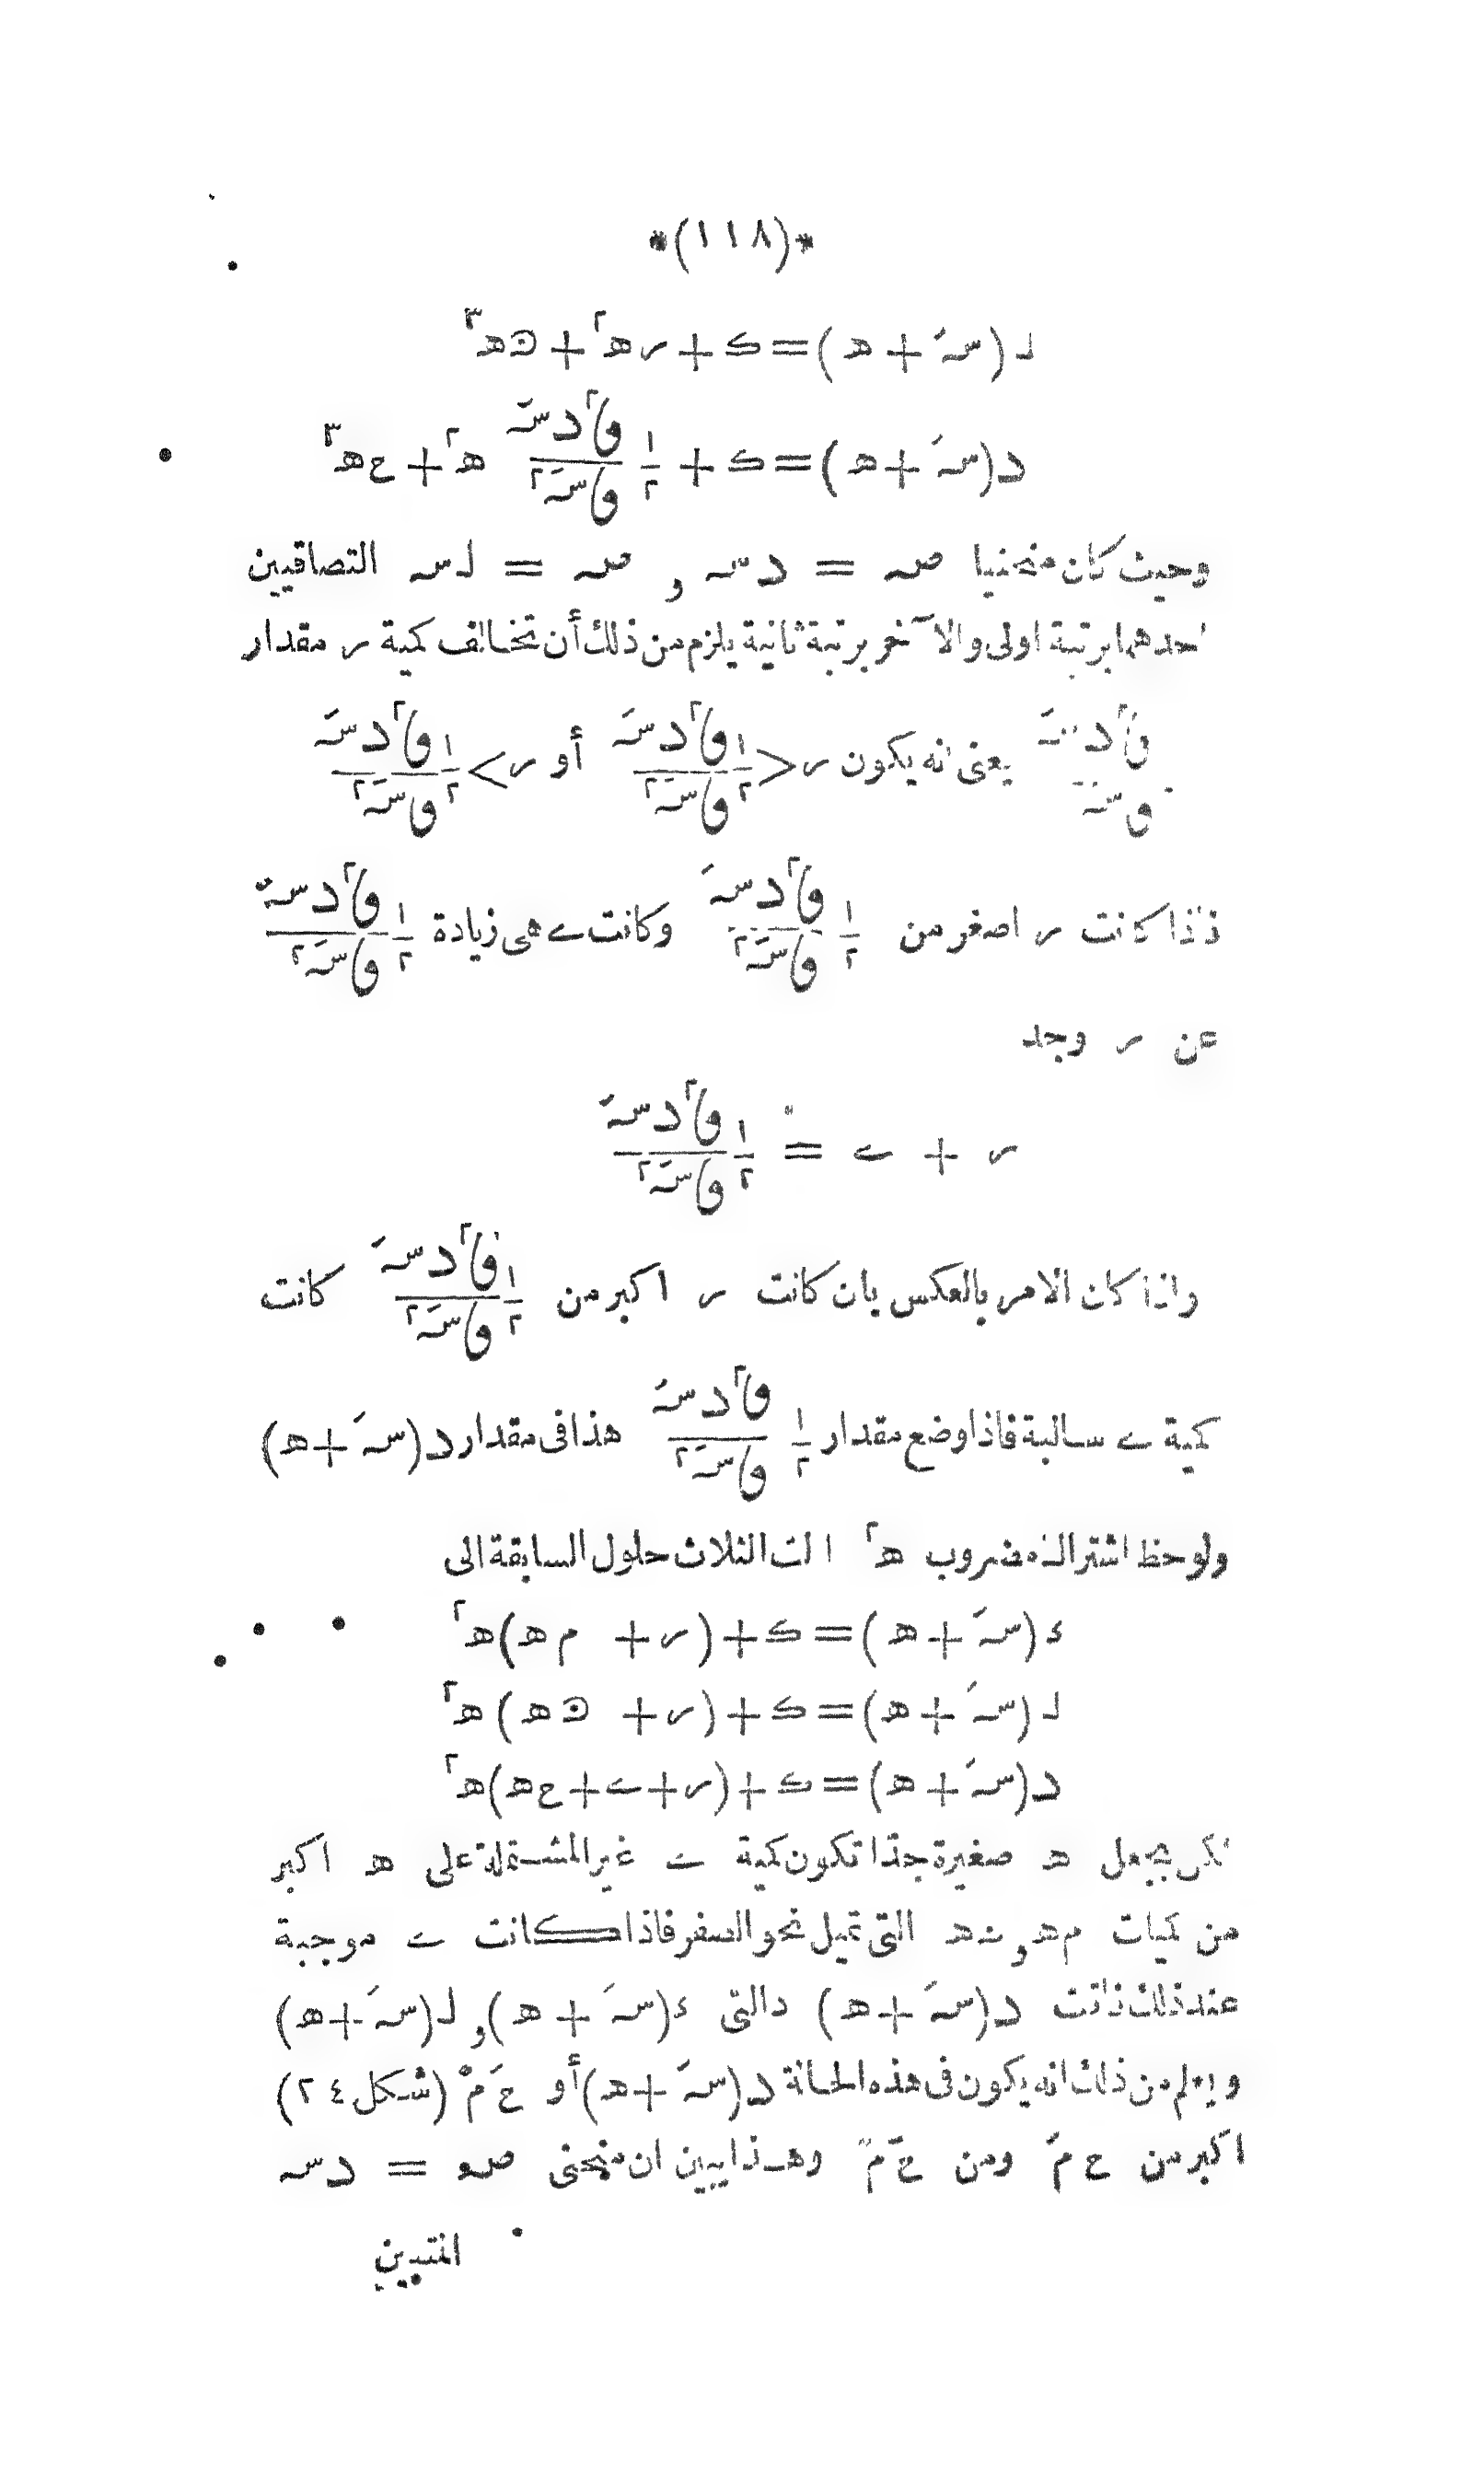 *(١١٨)*
لـ (سـَ + هـ) = ك + ر هـ٢ + ں هـ٣
د (سـَ + هـ) = ك + ١/٢ ق٢ د سـَ / ق سـَ٢ هـ٢ + ع هـ٣
وحيث كان منحنيا صـ = د سـ و صـ = لـ سـ التصاقيين
احدهما برتبة اولى والآخر برتبة ثانية يلزم من ذلك أن تخالف كمية ر مقدار
ق٢ د سـَ / ق سـَ٢ يعنى انه يكون ر < ١/٢ ق٢ د سـَ / ق سـَ٢ أو ر > ١/٢ ق٢ د سـَ / ق سـَ٢
فاذا كانت ر اصغر من ١/٢ ق٢ د سـَ / ق سـَ٢ وكانت ے هى زيادة ١/٢ ق٢ د سـَ / ق سـَ٢
عن ر وجد
ر + ے = ١/٢ ق٢ د سـَ / ق سـَ٢
واذا كان الامر بالعكس بان كانت ر اكبر من ١/٢ ق٢ د سـَ / ق سـَ٢ كانت
كمية ے سالبة فاذا وضع مقدار ١/٢ ق٢ د سـَ / ق سـَ٢ هذا فى مقدار د (سـَ + هـ)
ولوحظ اشتراك مضروب هـ٢ الت الثلاث حلول السابقة الى
ء (سـَ + هـ) = ك + (ر + م هـ) هـ٢
لـ (سـَ + هـ) = ك + (ر + ں هـ) هـ٢
د (سـَ + هـ) = ك + (ر + ے + ع هـ) هـ٢
لكن بجعل هـ صغيرة جدا تكون كمية ے غير المشتملة على هـ اكبر
من كميات م هـ و ں هـ التى تميل نحو الصفر فاذا كانت ے موجبة
عند ذلك فاقت د (سـَ + هـ) دالتى ء (سـَ + هـ) و لـ (سـَ + هـ)
ويعلم من ذلك انه يكون فى هذه الحالة د (سـَ + هـ) أو حَ مْ (شكل ٢٤)
اكبر من ح مَ ومن حَ مً وهذا يبين ان منحنى صـ = د سـ
المتبين